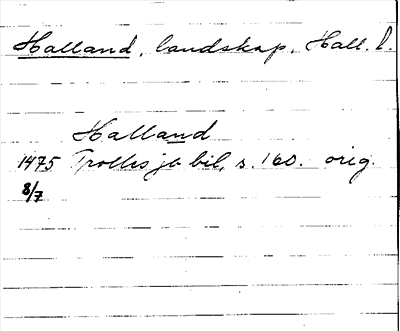 Halland, landskap, Hall. l.
Halland
1475 Trolles jb bil, s. 160. orig.
8/7